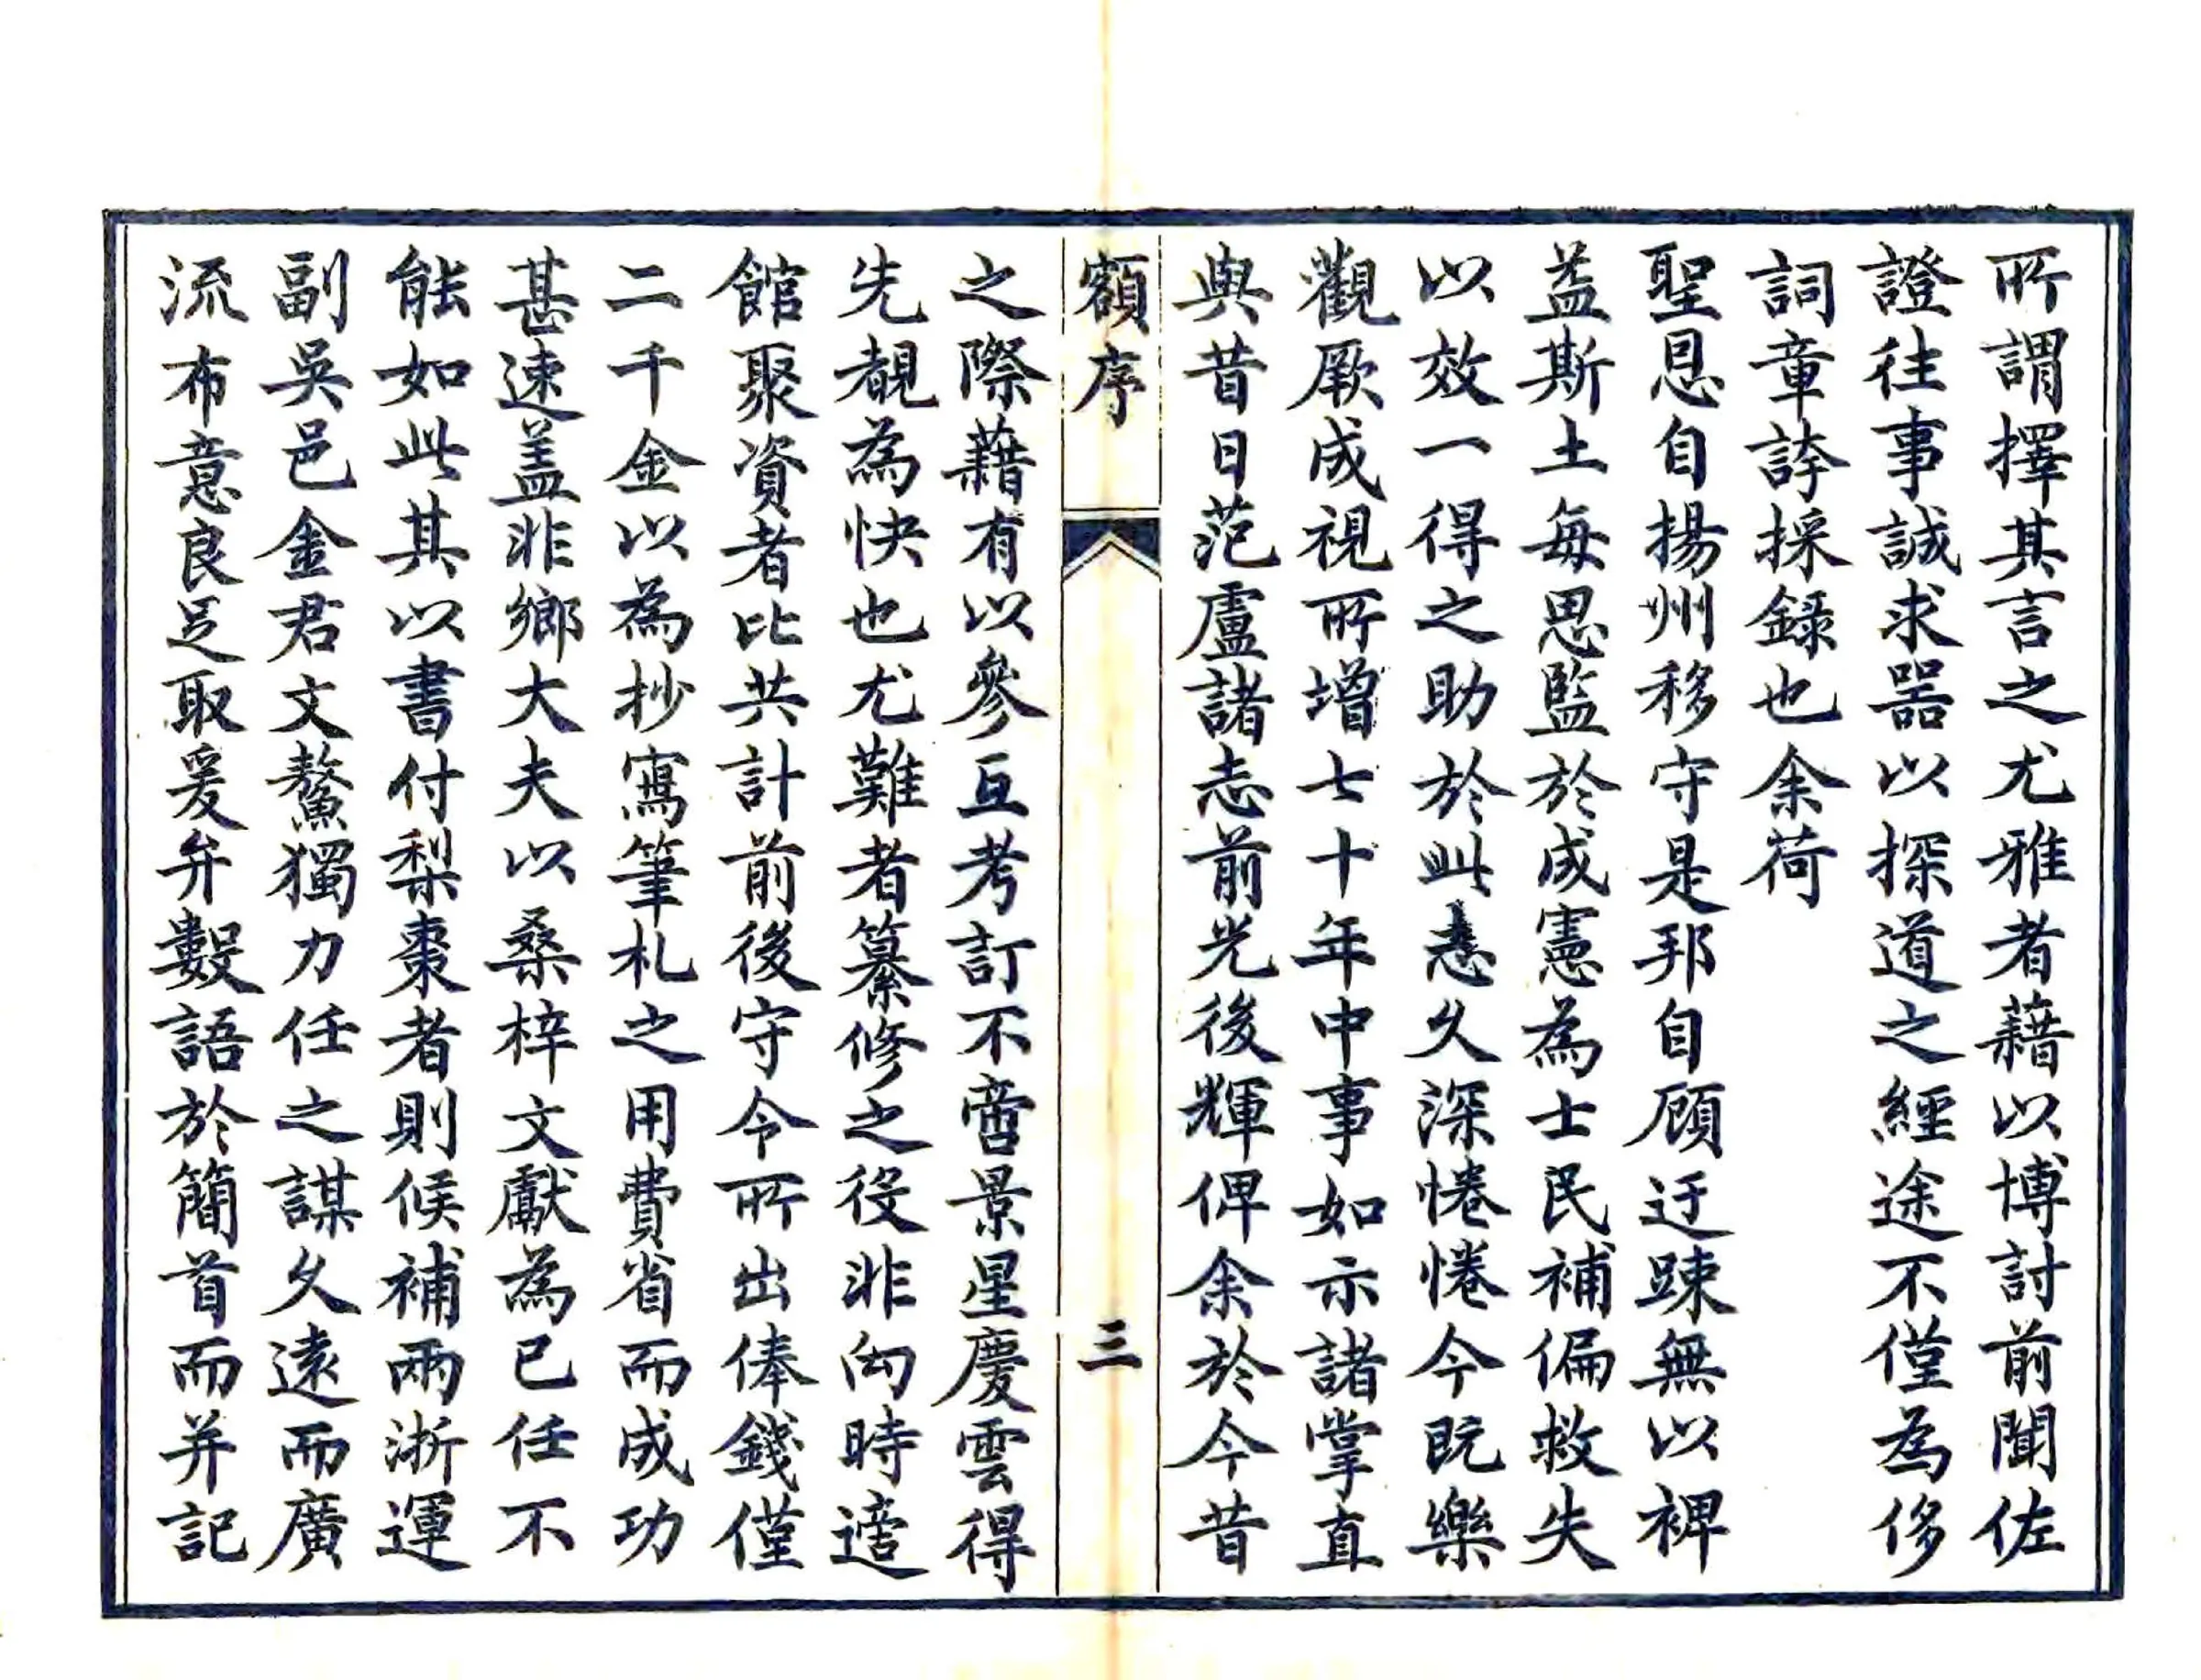 所謂擇其言之尤雅者藉以博討前聞佐
證往事誠求噐以探道之經途不僅為侈
詞章誇採録也余荷
聖恩自揚州移守是邦自顧迂踈無以裨
益斯土每思監於成憲為士民補偏救失
以效一得之助於此志久深惓惓今既樂
觀厥成視所增七十年中事如示諸掌直
與昔日范盧諸志前光後輝俾余於今昔
額序
三
之際藉有以參互考訂不啻景星慶雲得
先覩為快也尤難者纂修之役非向時遊
館聚資者比共計前後守令所出俸錢僅
二千金以為抄寫筆札之用費省而成功
甚速盖非鄉大夫以桑梓文獻為已任不
能如此其以書付梨棗者則候補兩浙運
副吳邑金君文鰲獨力任之謀久遠而廣
流布意良足取爰弁數語於簡首而并記